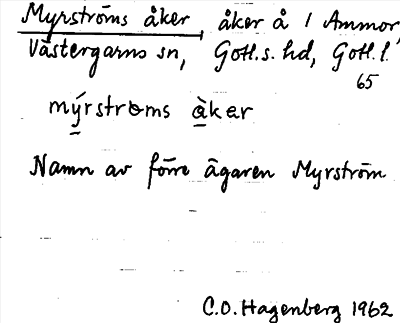 Myrströms åker, åker å / Ammor,
Västergarns sn, Gotl.s. hd, Gotl. l.
65
mýrstrɵms àkar
Namn av förre ägaren Myrström
C.O. Hagenberg 1962